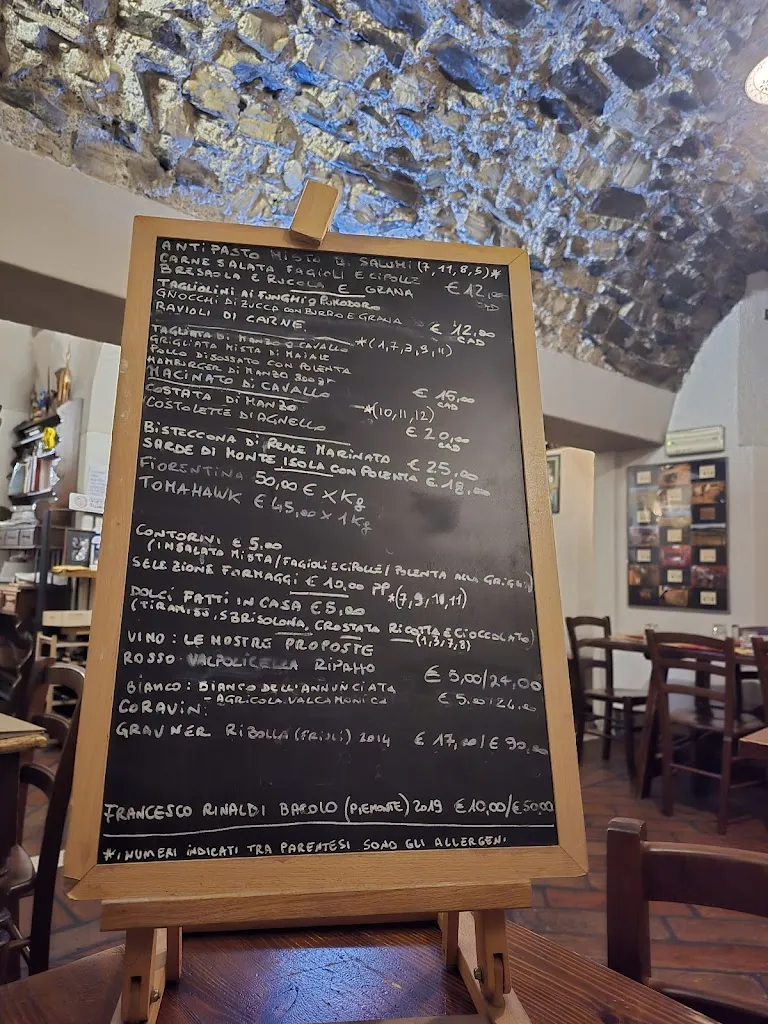 ANTIPASTO MISTO DI SALUMI (7,11,8,5)*
CARNE SALATA FAGIOLI E CIPOLLE
BRESAOLA E RUCOLA E GRANA € 12,00 CAD
TAGLIOLINI AI FUNGHI O POMODORO
GNOCCHI DI ZUCCA CON BURRO E GRANA
RAVIOLI DI CARNE € 12,00 CAD
TAGLIATA DI MANZO O CAVALLO *(1,7,3,9,11)
GRIGLIATA MISTA DI MAIALE
POLLO DISOSSATO CON POLENTA
HAMBURGER DI MANZO 300gr
MACINATO DI CAVALLO € 15,00 CAD
COSTATA DI MANZO *(10,11,12)
COSTOLETTE D'AGNELLO € 20,00 CAD
BISTECCONA DI REALE MARINATO € 25,00
SARDE DI MONTE ISOLA CON POLENTA € 18,00
FIORENTINA 50,00 € X Kg
TOMAHAWK € 45,00 x 1 Kg
CONTORNI € 5,00
(INSALATA MISTA/FAGIOLI E CIPOLLE/POLENTA ALLA GRIGLIA)
SELEZIONE FORMAGGI € 10,00 PP *(7,9,10,11)
DOLCI FATTI IN CASA € 5,00
(TIRAMISU, SBRISOLONA, CROSTATA RICOTTA E CIOCCOLATO)
(1,3,7,8)
VINO: LE NOSTRE PROPOSTE
ROSSO VALPOLICELLA RIPASSO € 5,00/24,00
BIANCO: BIANCO DELL'ANNUNCIATA € 5,00/24,00
AGRICOLA VALCAMONICA
CORAVIN:
GRAVNER RIBOLLA (FRIULI) 2014 € 17,00/€ 90,00
FRANCESCO RINALDI BAROLO (PIEMONTE) 2019 €10,00/€50,00
*I NUMERI INDICATI TRA PARENTESI SONO GLI ALLERGENI